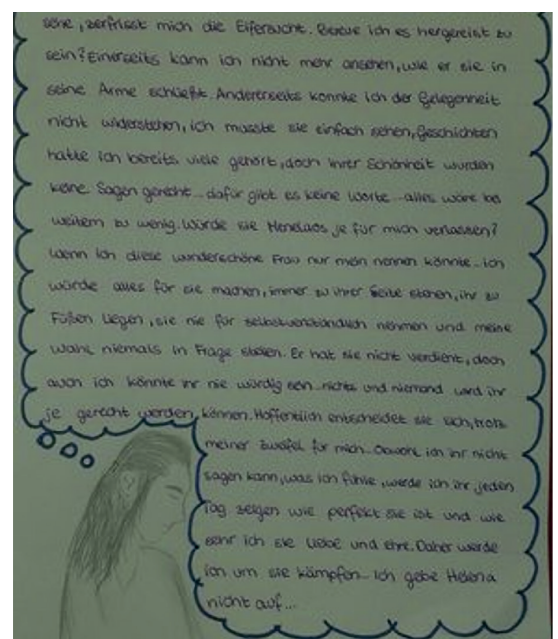 sehe, zerfrisst mich die Eifersucht. Bereue ich es hergereist zu
sein? Einerseits kann ich nicht mehr ansehen, wie er sie in
seine Arme schließt. Andererseits konnte ich der Gelegenheit
nicht widerstehen, ich musste sie einfach sehen, Geschichten
hatte ich bereits viele gehört, doch ihrer Schönheit wurden
keine Sagen gerecht... dafür gibt es keine Worte... alles wäre bei
weitem zu wenig. Würde sie Menelaos je für mich verlassen?
Wenn ich diese wunderschöne Frau nur mein nennen könnte... ich
würde alles für sie machen, immer zu ihrer Seite stehen, ihr zu
Füßen liegen, sie nie für selbstverständlich nehmen und meine
Wahl niemals in Frage stellen. Er hat sie nicht verdient, doch
auch ich könnte ihr nie würdig sein... nichts und niemand wird ihr
je gerecht werden können. Hoffentlich entscheidet sie sich, trotz
meiner Zweifel für mich... Obwohl ich ihr nicht
sagen kann, was ich fühle, werde ich ihr jeden
Tag zeigen wie perfekt sie ist und wie
sehr ich sie liebe und ehre. Daher werde
ich um sie kämpfen... Ich gebe Helena
nicht auf...